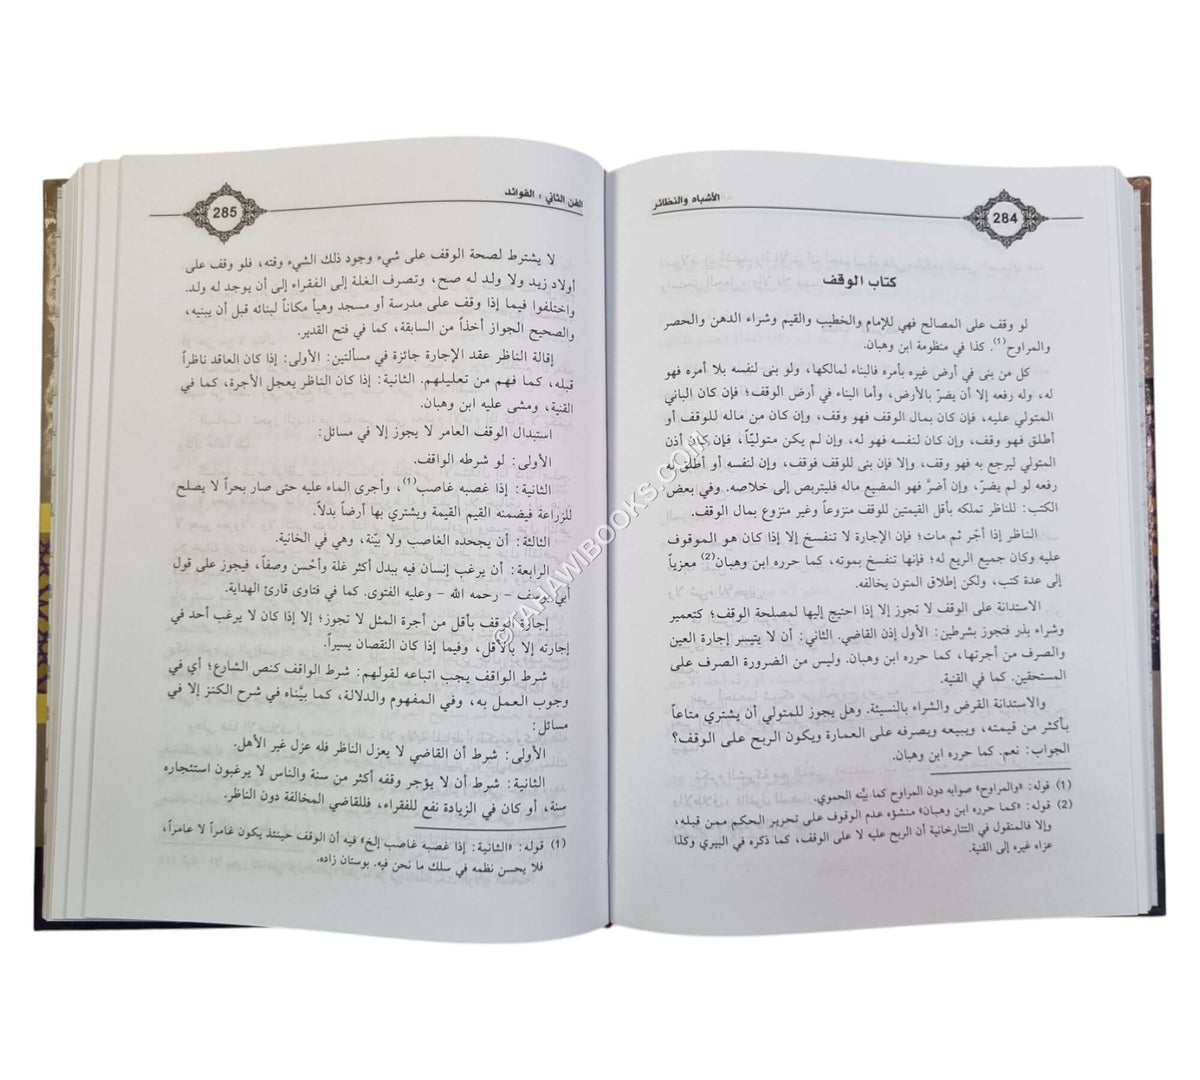 284
الأشباه والنظائر
كتاب الوقف
لو وقف على المصالح فهي للإمام والخطيب والقيم وشراء الدهن والحصر
والمراوح(1). كذا في منظومة ابن وهبان.
كل من بنى في أرض غيره بأمره فالبناء لمالكها، ولو بنى لنفسه بلا أمره فهو
له، وله رفعه إلا أن يضرّ بالأرض، وأما البناء في أرض الوقف؛ فإن كان الباني
المتولي عليه، فإن كان بمال الوقف فهو وقف، وإن كان من ماله للوقف أو
أطلق فهو وقف، وإن كان لنفسه فهو له، وإن لم يكن متوليّاً، فإن كان أذن
المتولي ليرجع به فهو وقف، وإلا فإن بنى للوقف فوقف، وإن لنفسه أو أطلق له
رفعه لو لم يضرّ، وإن أضرَّ فهو المضيع ماله فليتربص إلى خلاصه. وفي بعض
الكتب: للناظر تملكه بأقل القيمتين للوقف منزوعاً وغير منزوع بمال الوقف.
الناظر إذا أجّر ثم مات؛ فإن الإجارة لا تنفسخ إلا إذا كان هو الموقوف
عليه وكان جميع الريع له؛ فإنها تنفسخ بموته، كما حرره ابن وهبان(2) معزياً
إلى عدة كتب، ولكن إطلاق المتون يخالفه.
الاستدانة على الوقف لا تجوز إلا إذا احتيج إليها لمصلحة الوقف؛ كتعمير
وشراء بذر فتجوز بشرطين: الأول إذن القاضي. الثاني: أن لا يتيسر إجارة العين
والصرف من أجرتها، كما حرره ابن وهبان. وليس من الضرورة الصرف على
المستحقين. كما في القنية.
والاستدانة القرض والشراء بالنسيئة. وهل يجوز للمتولي أن يشتري متاعاً
بأكثر من قيمته، ويبيعه ويصرفه على العمارة ويكون الربح على الوقف؟
الجواب: نعم. كما حرره ابن وهبان.
(1) قوله: «والمراوح» صوابه دون المراوح كما بيَّنه الحموي.
(2) قوله: «كما حرره ابن وهبان» منشؤه عدم الوقوف على تحرير الحكم ممن قبله،
وإلا فالمنقول في التتارخانية أن الربح عليه لا على الوقف، كما ذكره في البيري وكذا
عزاه غيره إلى القنية.
الفن الثاني : الفوائد
285
لا يشترط لصحة الوقف على شيء وجود ذلك الشيء وقته، فلو وقف على
أولاد زيد ولا ولد له صح، وتصرف الغلة إلى الفقراء إلى أن يوجد له ولد.
واختلفوا فيما إذا وقف على مدرسة أو مسجد وهيأ مكاناً لبنائه قبل أن يبنيه،
والصحيح الجواز أخذاً من السابقة، كما في فتح القدير.
إقالة الناظر عقد الإجارة جائزة في مسألتين: الأولى: إذا كان العاقد ناظراً
قبله، كما فهم من تعليلهم. الثانية: إذا كان الناظر يعجل الأجرة، كما في
القنية، ومشى عليه ابن وهبان.
استبدال الوقف العامر لا يجوز إلا في مسائل:
الأولى: لو شرطه الواقف.
الثانية: إذا غصبه غاصب(1)، وأجرى الماء عليه حتى صار بحراً لا يصلح
للزراعة فيضمنه القيم القيمة ويشتري بها أرضاً بدلاً.
الثالثة: أن يجحده الغاصب ولا بيّنة، وهي في الخانية.
الرابعة: أن يرغب إنسان فيه ببدل أكثر غلة وأحسن وصفاً، فيجوز على قول
أبي يوسف - رحمه الله - وعليه الفتوى. كما في فتاوى قارئ الهداية.
إجارة الوقف بأقل من أجرة المثل لا تجوز؛ إلا إذا كان لا يرغب أحد في
إجارته إلا بالأقل، وفيما إذا كان النقصان يسيراً.
شرط الواقف يجب اتباعه لقولهم: شرط الواقف كنص الشارع؛ أي في
وجوب العمل به، وفي المفهوم والدلالة، كما بيَّناه في شرح الكنز إلا في
مسائل:
الأولى: شرط أن القاضي لا يعزل الناظر فله عزل غير الأهل.
الثانية: شرط أن لا يؤجر وقفه أكثر من سنة والناس لا يرغبون استئجاره
سنة، أو كان في الزيادة نفع للفقراء، فللقاضي المخالفة دون الناظر.
(1) قوله: «الثانية: إذا غصبه غاصب إلخ» فيه أن الوقف حينئذ يكون غامراً لا عامراً،
فلا يحسن نظمه في سلك ما نحن فيه. بوستان زاده.
©TAHAWIBOOKS.COM